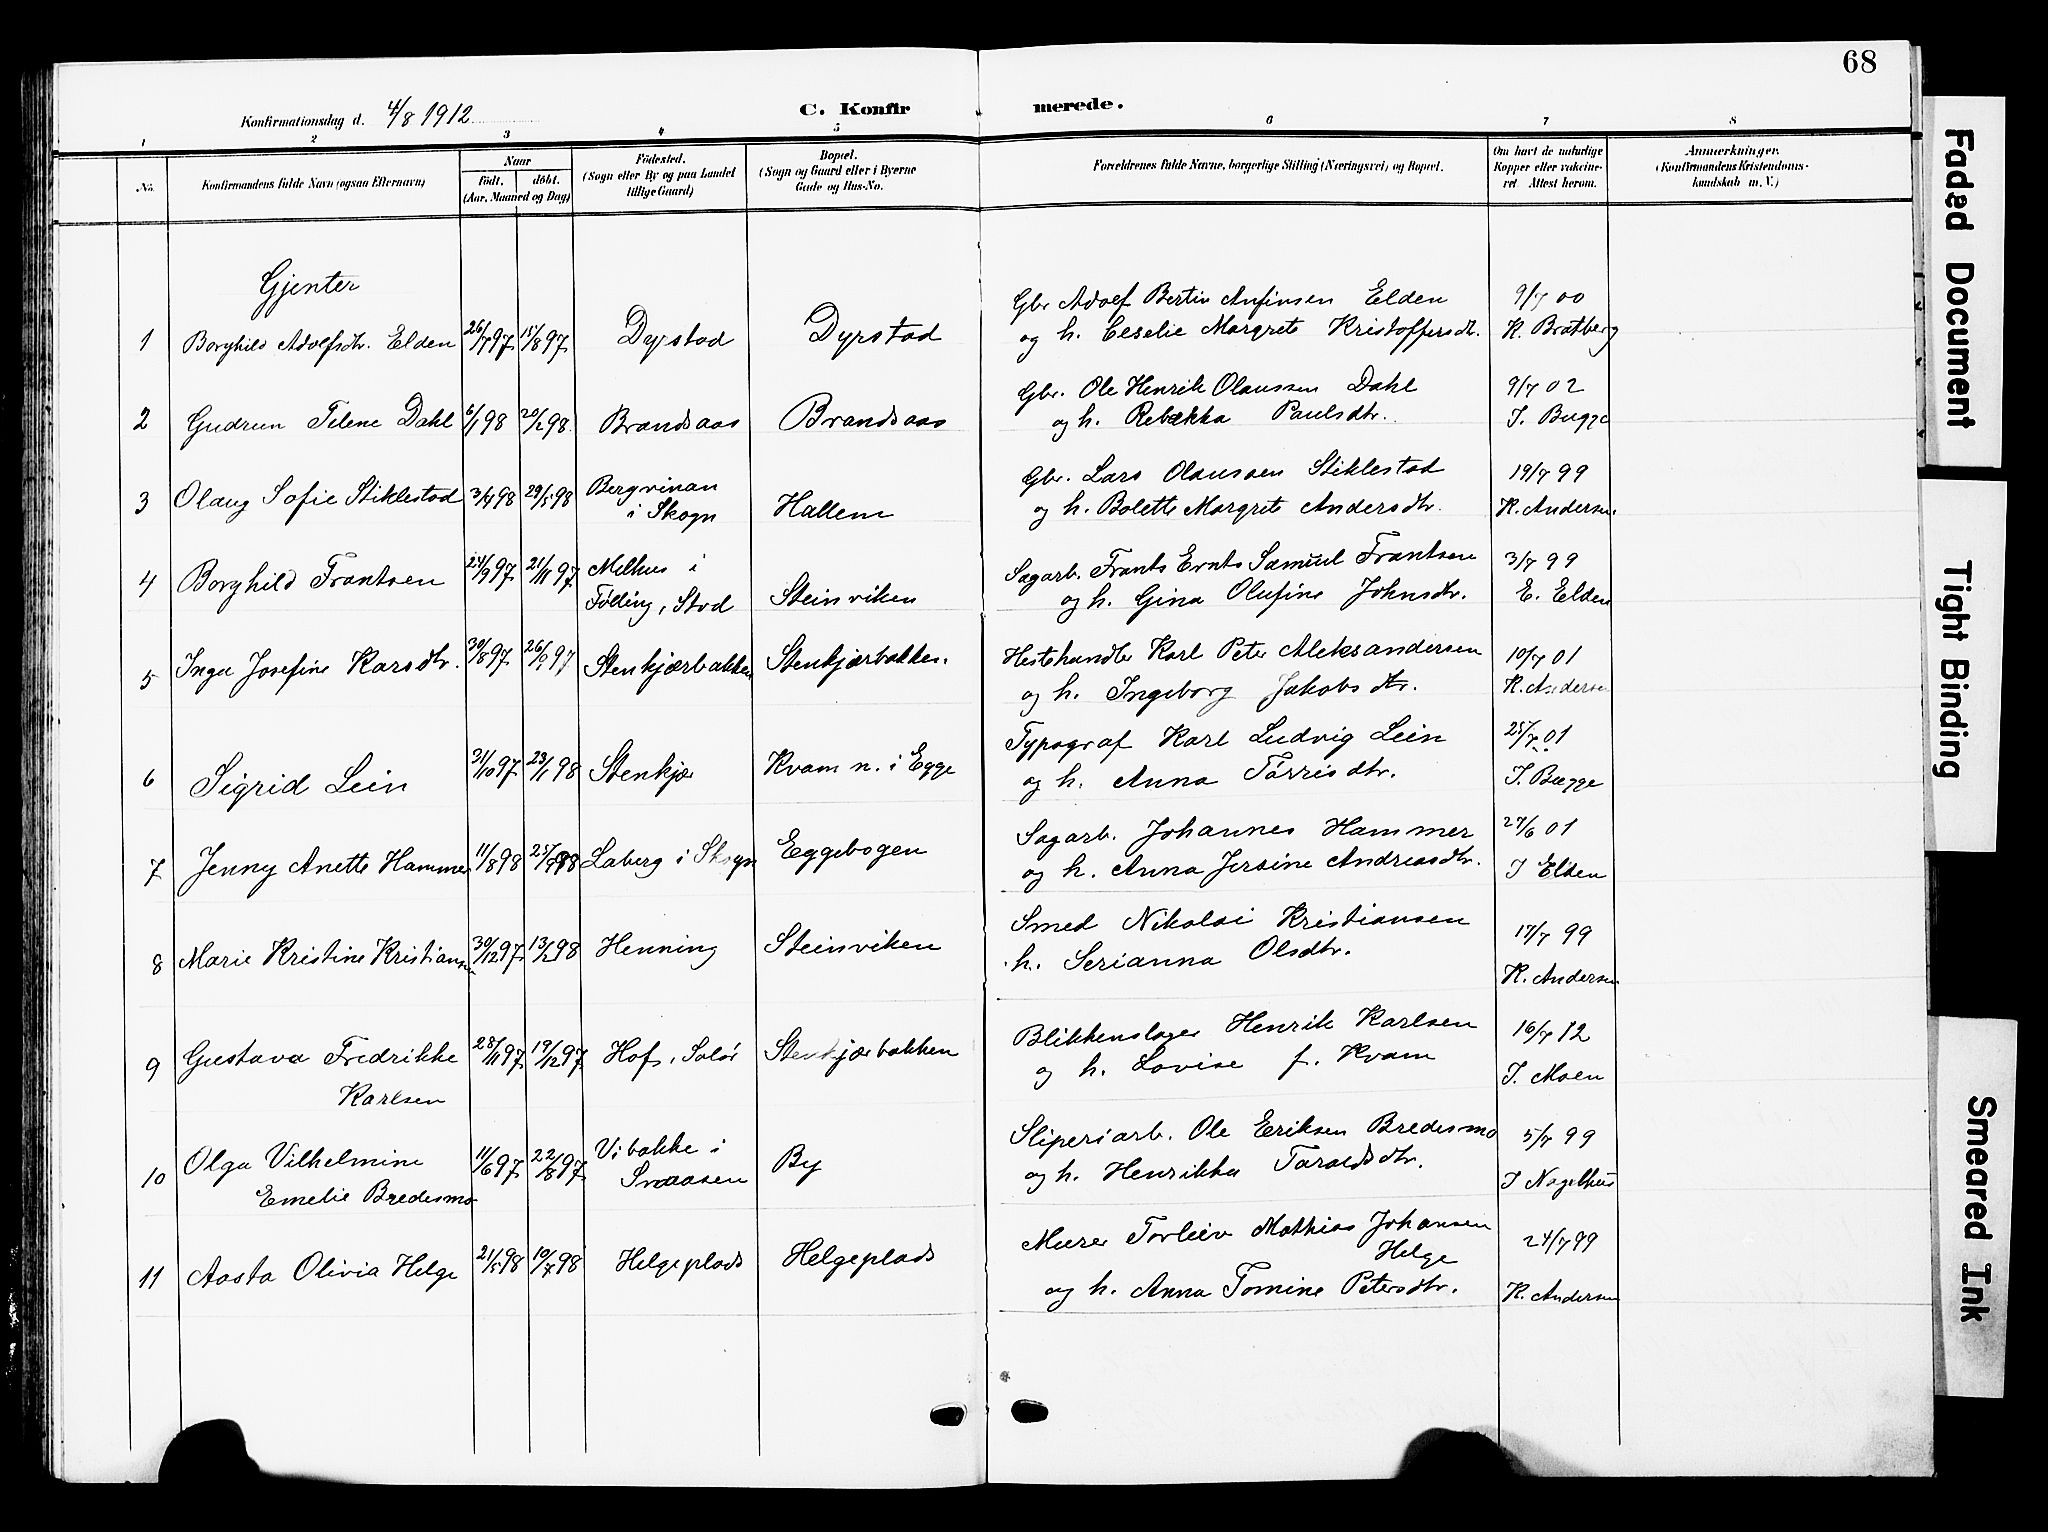 68
Konfirmationsdag d. 4/8 1912
C. Konfir merede.
1 2 3 4 5 6 7 8
No.
Konfirmandens fulde Navn (ogsaa Efternavn)
Naar
Födt. döbt.
(Aar, Maaned og Dag)
Födested.
(Sogn eller By og paa Landet
tillige Gaard)
Bopæl.
(Sogn og Gaard eller i Byerne
Gade og Hus-No.
Forældrenes fulde Navne, borgerlige Stilling (Næringsvei) og Bopæl.
Om havt de naturlige
Kopper eller vakcine-
ret Attest herom.
Anmærkninger.
(Konfirmandens Kristendoms-
kundskab m. V.)
Gjenter
Gbr Adolf Bertin Anfinsen Elden 9/7 00
1 Borghild Adolfsdtr. Elden 26/7 97 15/8 97 Dystad Dyrstad og h. Ceselie Margrete Kristoffersdt. K. Bratberg
Gbr. Ole Henrik Olaussen Dahl 9/7 02
2 Gudrun Telene Dahl 6/1 98 20/2 98 Brandsaas Brandsaas og h. Rebekka Paulsdtr. J. Bugge
Gbr. Lars Olaussen Stiklestad 19/7 99
3 Olaug Sofie Stiklestad 3/4 98 29/5 98 Bergvinan
i Skogn Hallem og h. Bolette Margrete Andersdtr. K. Andersen
Sagarb. Frants Ernts Samuel Frantsen 3/7 99
4 Borghild Frantsen 24/9 97 21/11 97 Melhus i
Følling, Stod Steinviken og h. Gina Olufine Johnsdtr. E. Elden
Hestehandler Karl Peter Aleksandersen 10/7 01
5 Inga Josefine Karsdtr. 30/8 97 26/9 97 Stenkjærbakken Stenkjærbakken. og h. Ingeborg Jakobsdtr. K. Andersen
Typograf Karl Ludvig Lein 25/7 01
6 Sigrid Lein 31/10 97 23/1 98 Stenkjær Kvam n. i Egge og h. Anna Tórrisdtr. J. Bugge
Sagarb. Johannes Hammer 27/6 01
7 Jenny Anette Hammer 11/8 98 25/9 98 Laberg i Skogn Eggebogen og h. Anna Jersine Andreasdtr. J Elden
Smed Nikolai Kristiansen 17/7 99
8 Marie Kristine Kristiansen 30/12 97 13/2 98 Henning Steinviken h. Serianna Olsdtr. K. Andersen
Blikkenslager Henrik Karlsen 16/7 12
9 Gustava Fredrikke
Karlsen 28/11 97 19/12 97 Hof, Solør Stenkjærbakken og h. Lovise f. Kvam J. Moen
Sliperiarb. Ole Eriksen Bredesmo 5/7 99
10 Olga Vilhelmine
Emelie Bredesmo 11/6 97 22/8 97 Vibakke i
Snaasen By og h. Henrikka Taraldsdtr. J Nagelhus
Murer Torleiv Mathias Johansen
Helge 24/7 99
11 Aasta Olivia Helge 21/5 98 10/7 98 Helgeplads Helgeplads og h. Anna Tomine Petersdtr. K. Andersen
Faded Document
Tight Binding
Smeared Ink